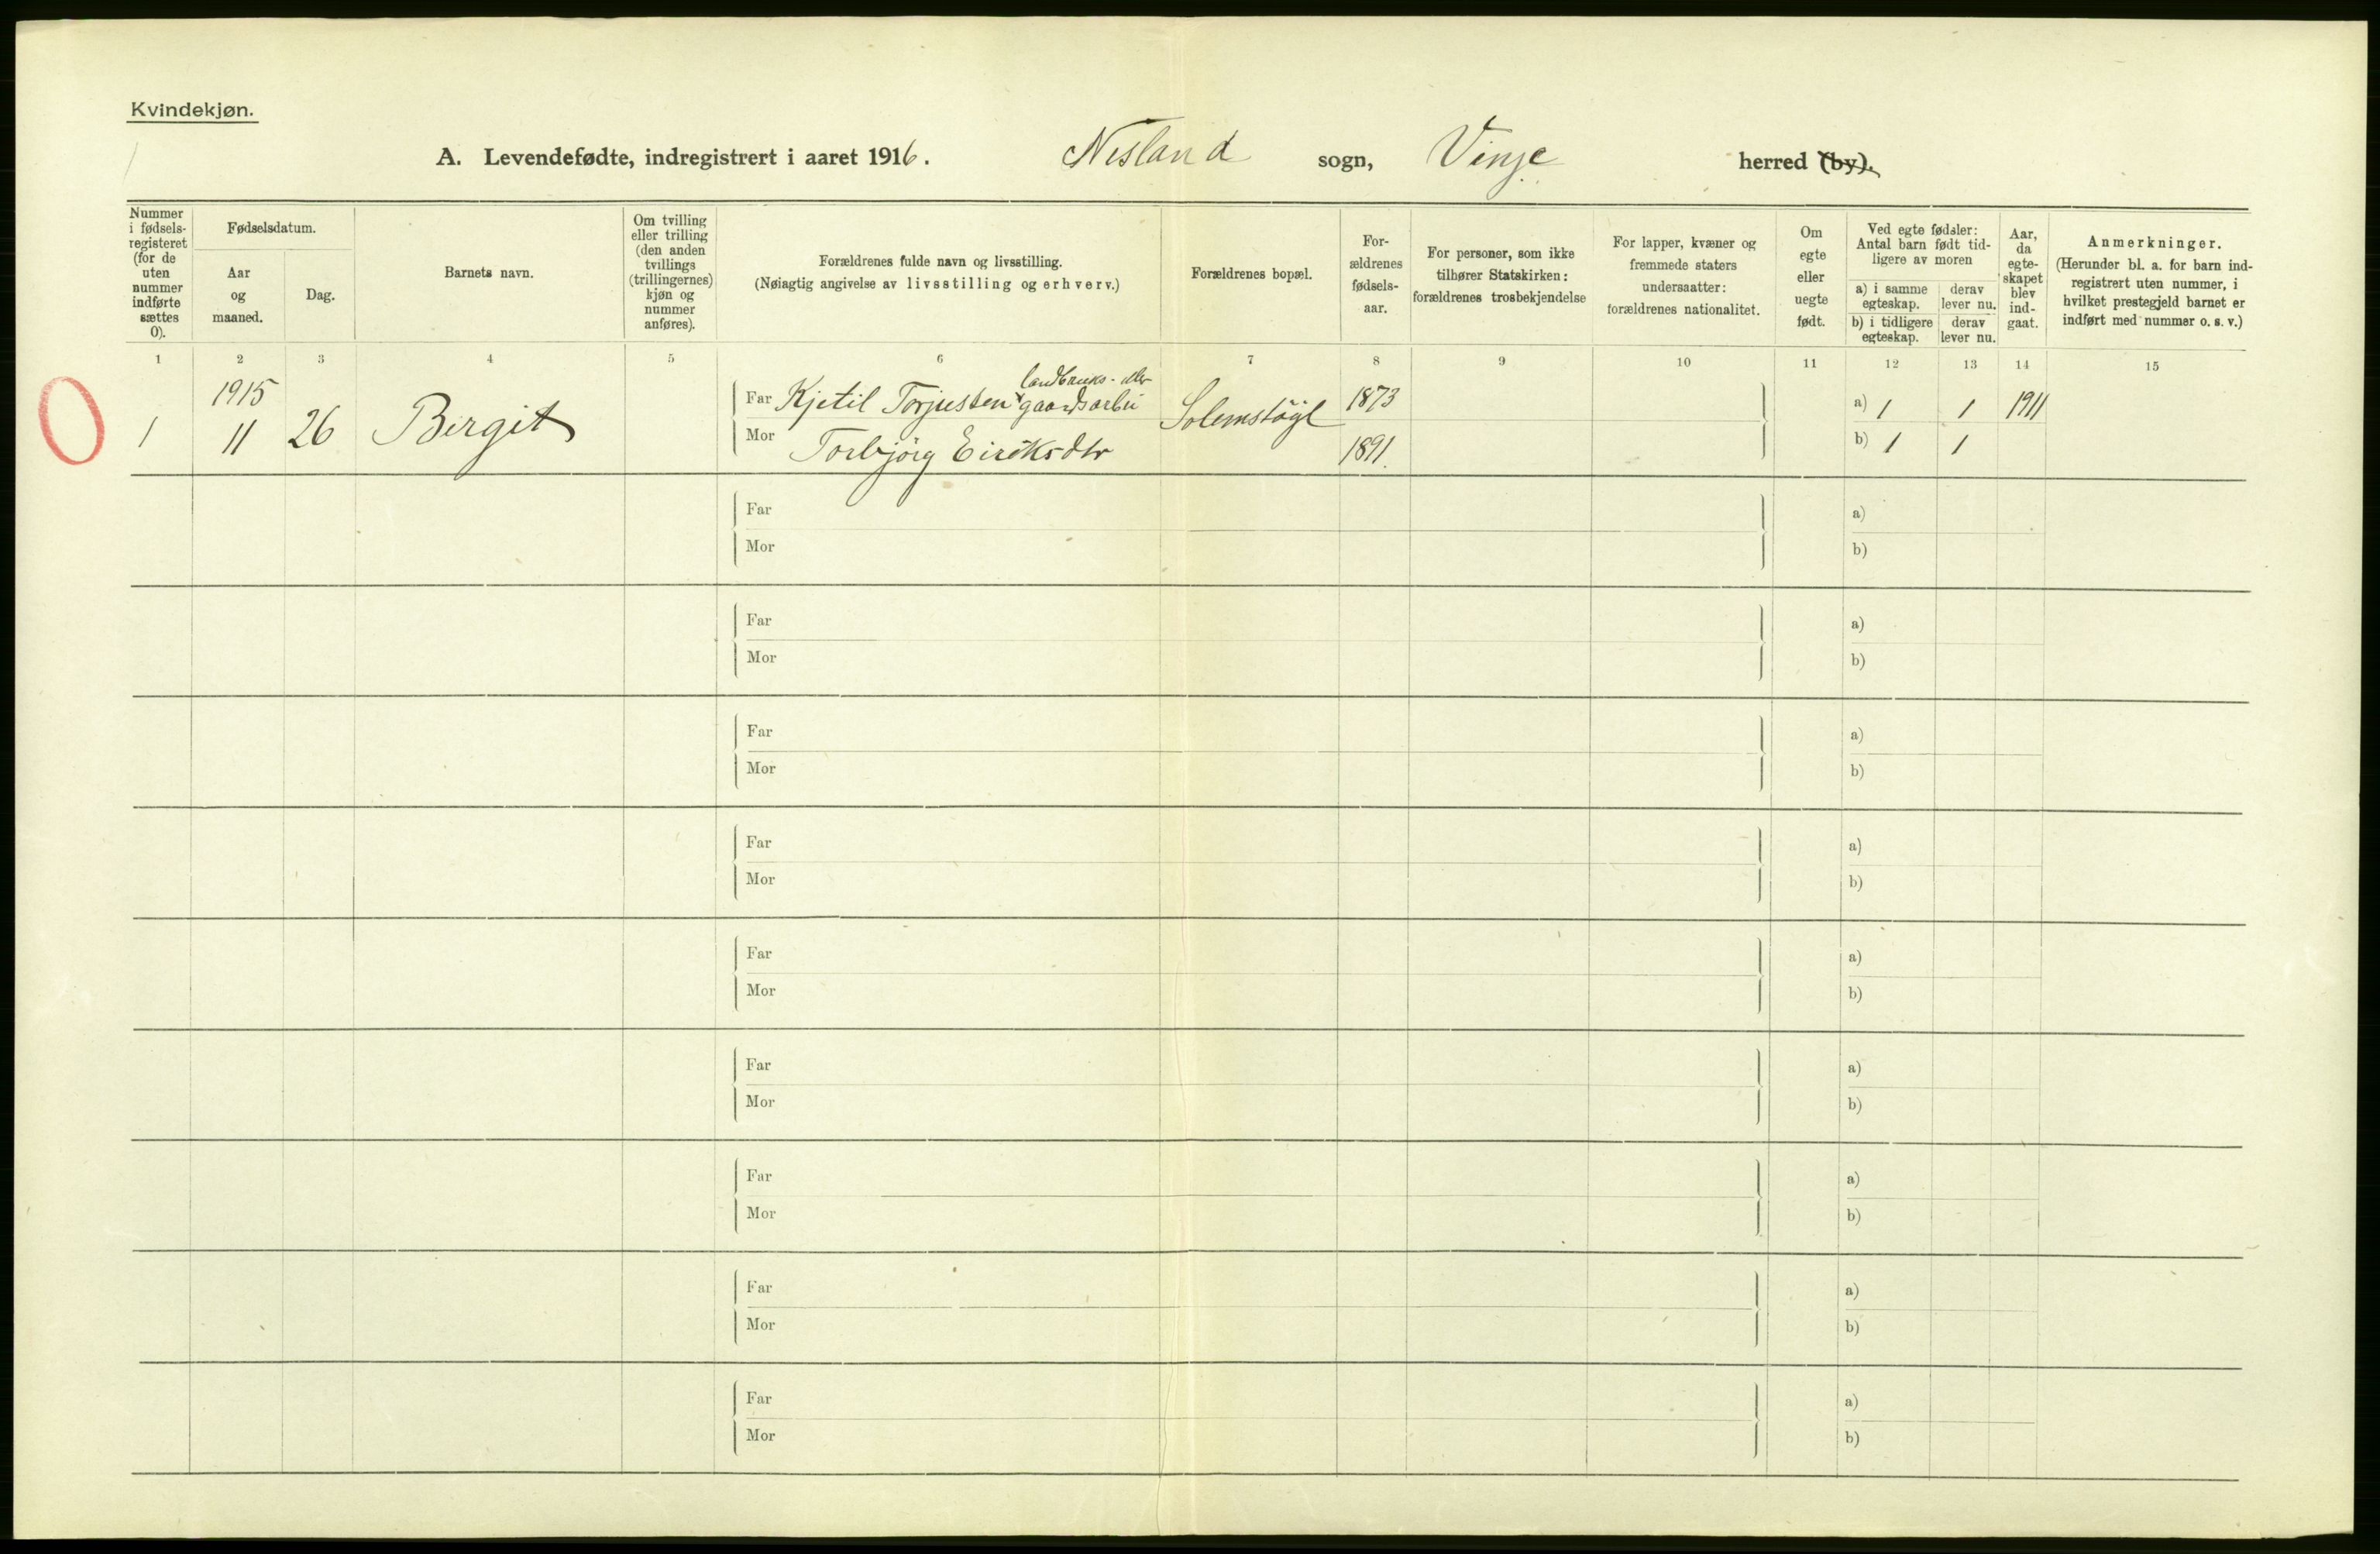 Kvindekjøn.
A. Levendefødte, indregistrert i aaret 1916. Nesland sogn, Vinje herred (by).
Nummer i fødsels-registeret (for de uten nummer indførte sættes 0).
Fødselsdatum.
Aar og maaned.
Dag.
Barnets navn.
Om tvilling eller trilling (den anden tvillings (trillingernes) kjøn og nummer anføres).
Forældrenes fulde navn og livsstilling.
(Nøiagtig angivelse av livsstilling og erhverv.)
Forældrenes bopæl.
For-ældrenes fødsels-aar.
For personer, som ikke tilhører Statskirken: forældrenes trosbekjendelse
For lapper, kvæner og fremmede staters undersaatter: forældrenes nationalitet.
Om egte eller uegte født.
Ved egte fødsler: Antal barn født tid-ligere av moren
a) i samme egteskap.
derav lever nu.
b) i tidligere egteskap.
derav lever nu.
Aar, da egte-skapet blev ind-gaat.
Anmerkninger.
(Herunder bl. a. for barn ind-registrert uten nummer, i hvilket prestegjeld barnet er indført med nummer o. s. v.)
1 2 3 4 5 6 7 8 9 10 11 12 13 14 15
0
1915
landbruks-
Far Kjetil Torjussen gaardsarbei Solemstøyl 1873 a) 1 1 1911
1 11 26 Birgit
Mor Torbjörg Eiriksdtr 1891. b) 1 1
Far a)
Mor b)
Far a)
Mor b)
Far a)
Mor b)
Far a)
Mor b)
Far a)
Mor b)
Far a)
Mor b)
Far a)
Mor b)
Far a)
Mor b)
Far a)
Mor b)